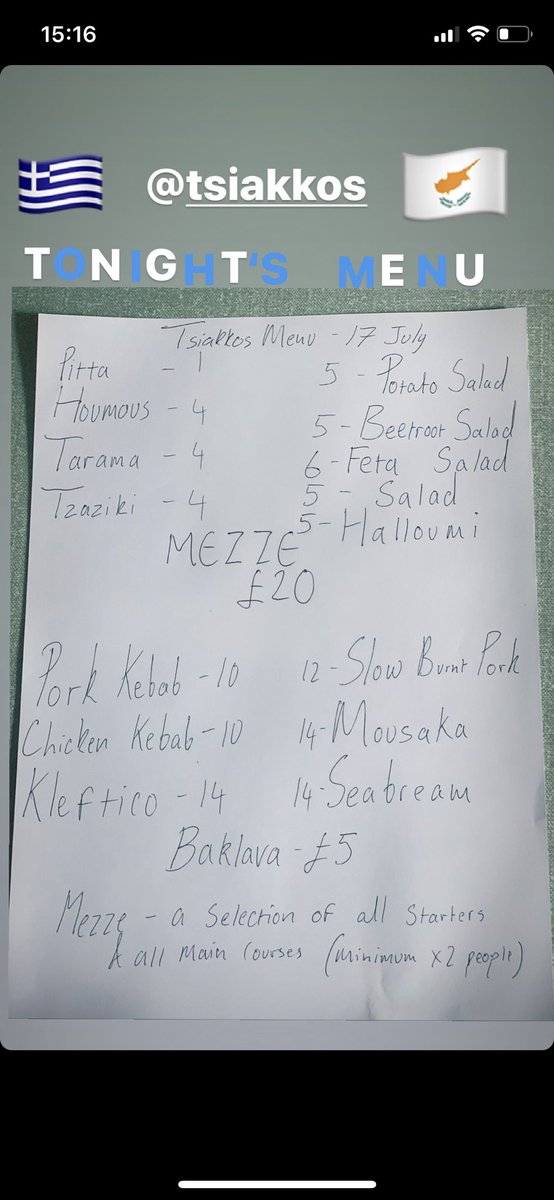 15:16
@tsiakkos
TONIGHT'S MENU
Tsiakkos Menu - 17 July
Pitta - 1
5 - Potato Salad
Houmous - 4
5 - Beetroot Salad
Tarama - 4
6 - Feta Salad
Tzaziki - 4
5 - Salad
5 - Halloumi
MEZZE
£20
Pork Kebab - 10
12 - Slow Burnt Pork
Chicken Kebab - 10
14 - Mousaka
Kleftico - 14
14 - Seabream
Baklava - £5
Mezze - a selection of all starters
& all main courses (minimum x2 people)